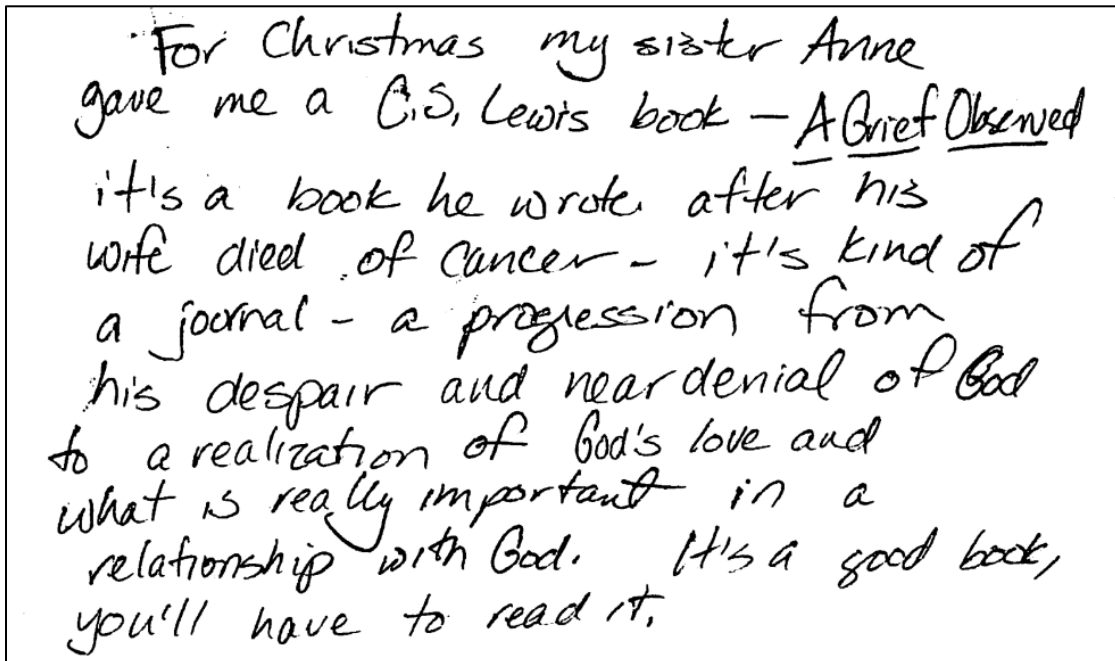 For Christmas my sister Anne
gave me a C.S. Lewis book – A Grief Observed
it's a book he wrote after his
wife died of cancer – it's kind of
a journal – a progression from
his despair and near denial of God
to a realization of God's love and
what is really important in a
relationship with God. It's a good book,
you'll have to read it.